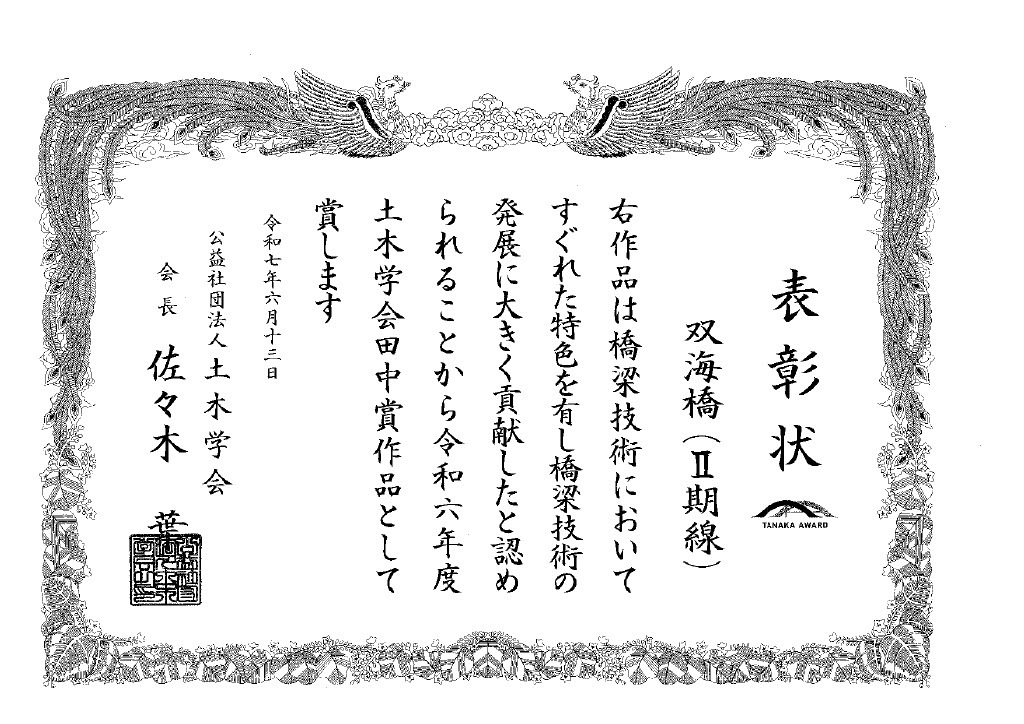 表彰状
TANAKA AWARD
双海橋（Ⅱ期線）
右作品は橋梁技術において
すぐれた特色を有し橋梁技術の
発展に大きく貢献したと認め
られることから令和六年度
土木学会田中賞作品として
賞します
令和七年六月十三日
公益社団法人 土木学会
会長 佐々木 葉